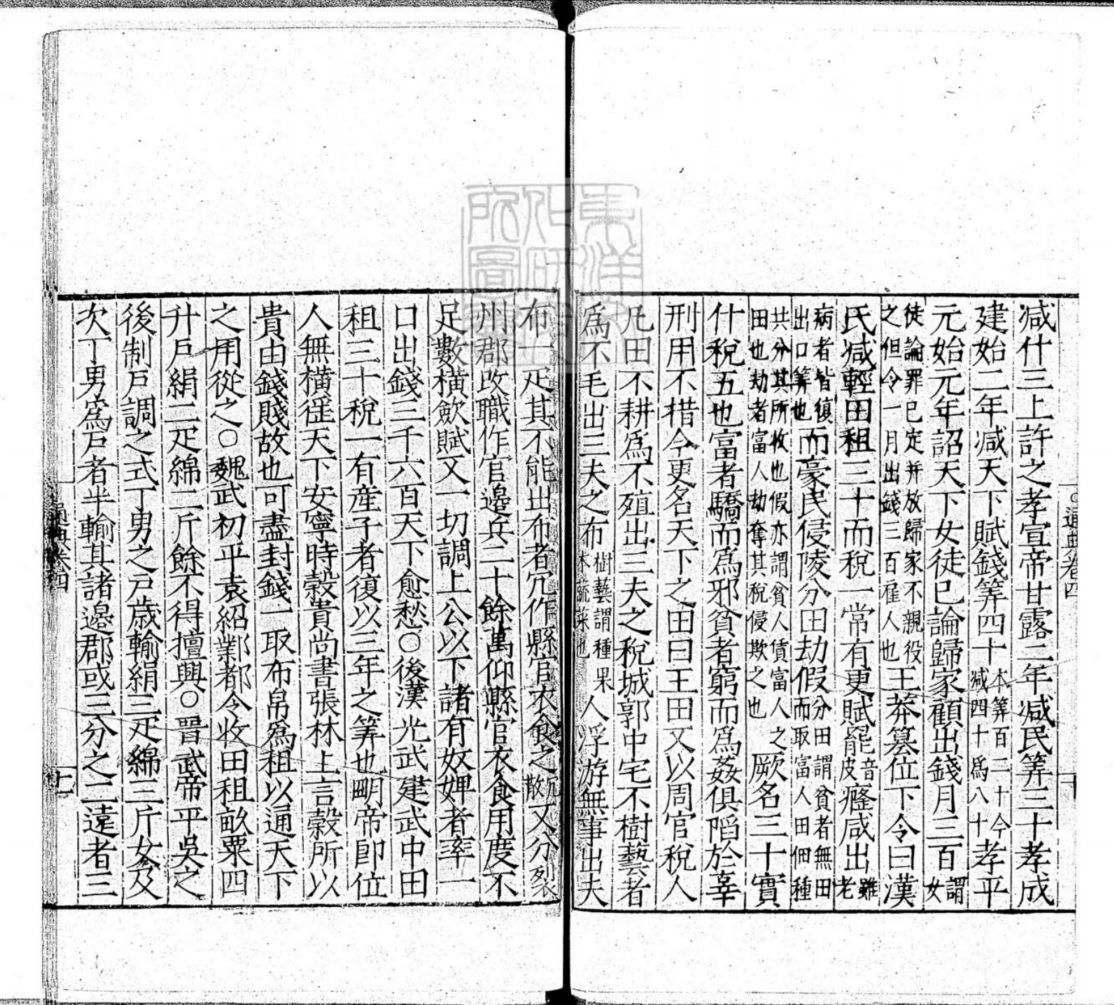 減什三上許之孝宣帝甘露二年減民筭三十孝成
建始二年減天下賦錢筭四十本筭百二十今減四十爲八十孝平
元始元年詔天下女徒已論歸家顧出錢月三百謂女
徒論罪已定并放歸家不親役之但令一月出錢三百雇人也王莽簒位下令曰漢
氏減輕田租三十而稅一常有更賦罷音皮癃咸出雖老
病者皆復出口筭也而豪民侵陵分田劫假分田謂貧者無田而取富人田佃種
共分其所收也假亦謂貧人賃富人之田也劫者富人劫奪其稅侵欺之也厥名三十實
什稅五也富者驕而爲邪貧者窮而爲姦俱陷於辜
刑用不措今更名天下之田曰王田又以周官稅人
凡田不耕爲不殖出三夫之稅城郭中宅不樹藝者
爲不毛出三夫之布樹藝謂種果木蔬菜也人浮游無事出夫
布一疋其不能出布者冗作縣官衣食之冗散又分裂
州郡改職作官邊兵二十餘萬仰縣官衣食用度不
足數橫斂賦又一切調上公以下諸有奴婢者率一
口出錢三千六百天下愈愁○後漢光武建武中田
租三十稅一有產子者復以三年之筭也明帝即位
人無橫徭天下安寧時穀貴尚書張林上言穀所以
貴由錢賤故也可盡封錢一取布帛爲租以通天下
之用從之○魏武初平袁紹鄴都令收田租畝粟四
升戶絹二疋綿二斤餘不得擅興○晉武帝平吳之
後制戶調之式丁男之戶歲輸絹三疋綿三斤女及
次丁男爲戶者半輸其諸邊郡或三分之二遠者三
通典卷四
七